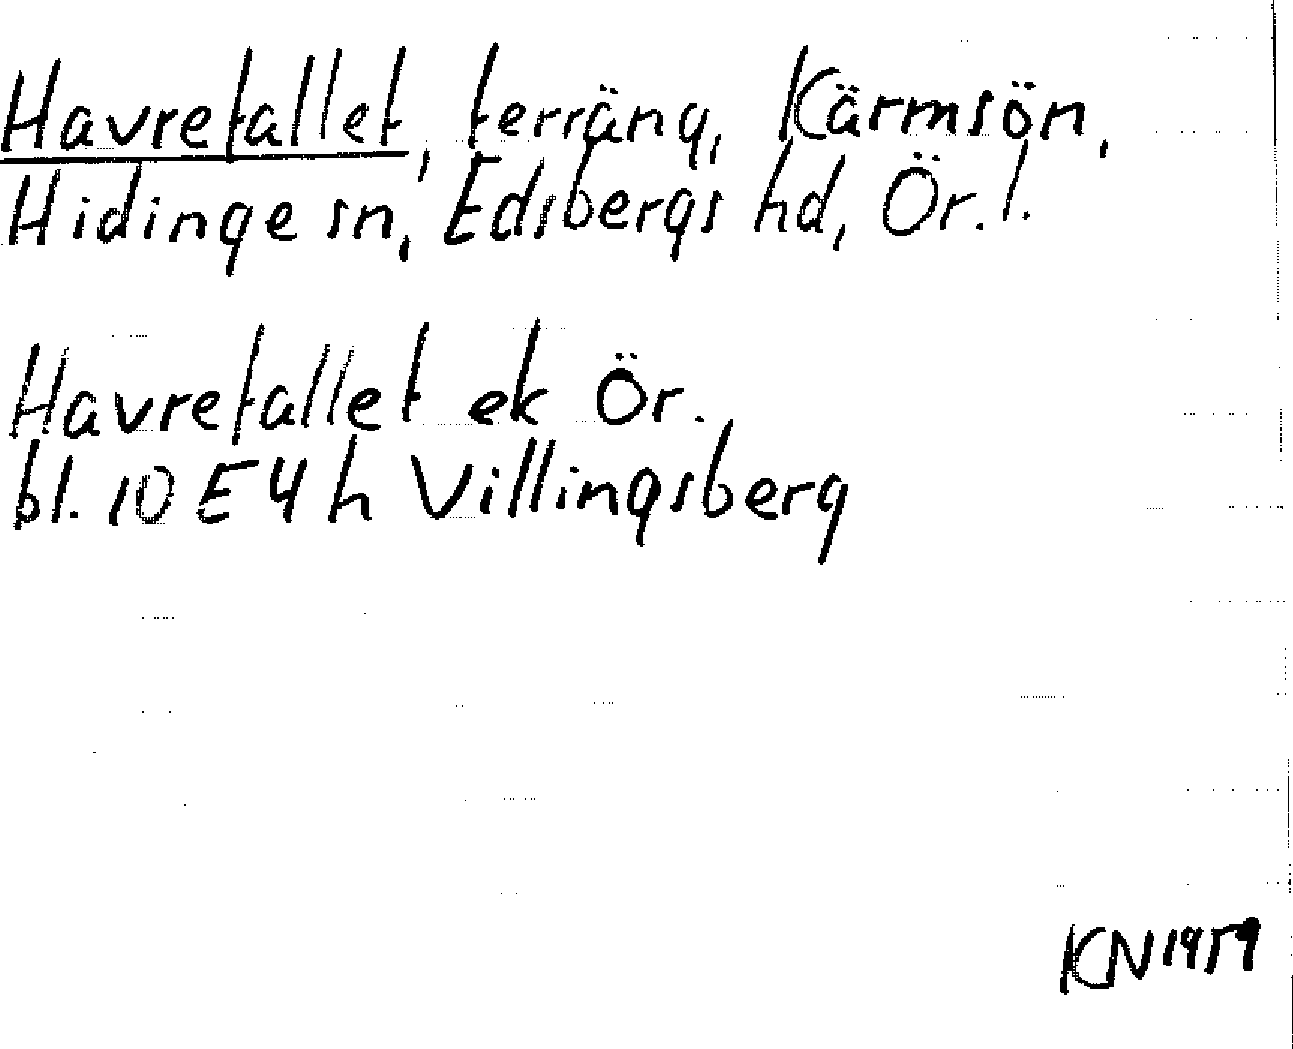 Havrefallet, terräng, Kärmsön,
Hidinge sn, Edsbergs hd, Ör. l.
Havrefallet ek Ör.
bl. 10 E 4 h Villingsberg
KN 1959